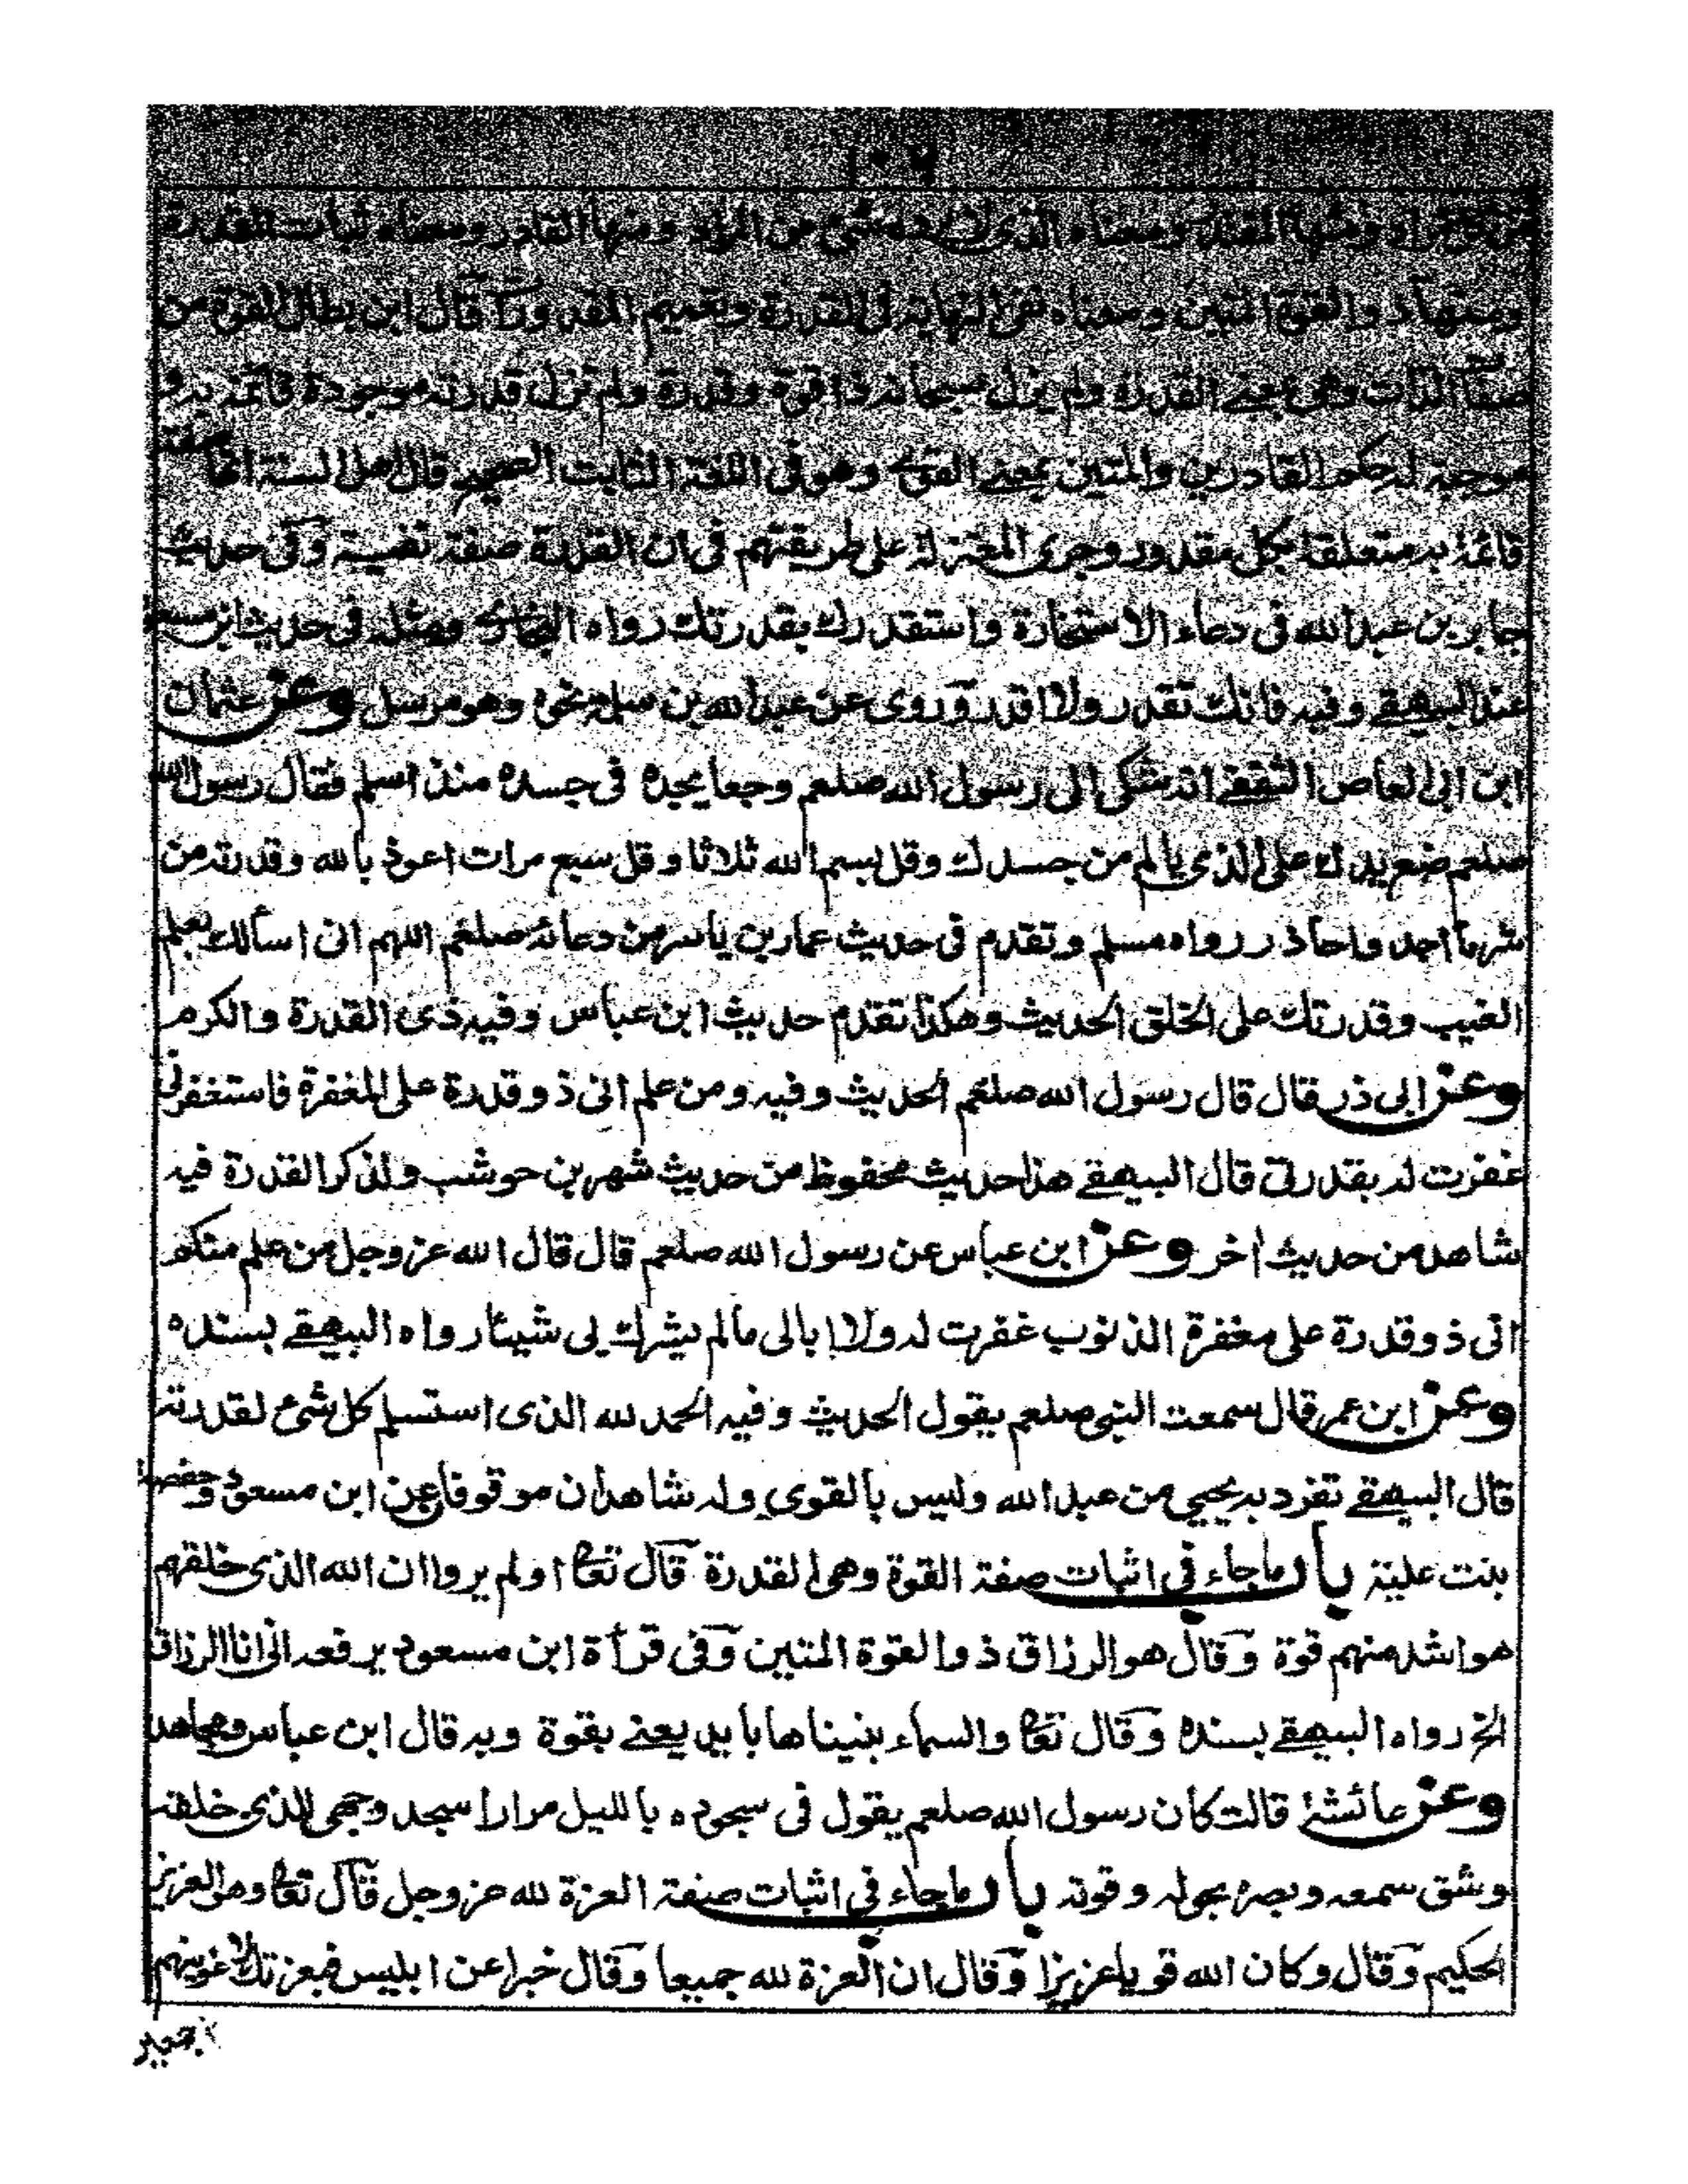 ومنها المقتدر ومعناه الذى لا يرده شئ عن المراد ومنها القادر ومعناه اثبات القدرة
ومنها ذو القوة المتين ومعناه نفى النهاية فى القدرة وتعميم المقدورات قال ابن بطال القوة من
صفات الذات وهى بمعنى القدرة ولم يزل سبحانه ذا قوة وقدرة ولم تزل قدرته موجودة قائمة به و
موجبة له حكم القادرين والمتين بمعنى القوى وهو فى اللغة الثابت الصحيح قال اهل السنة انها صفة
قائمة به متعلقة بكل مقدور وجرى المعتزلة على طريقتهم فى ان القدرة صفة نفسية وفى حديث
جابر بن عبد الله فى دعاء الاستخارة واستقدرك بقدرتك رواه البخارى ومثله فى حديث ابن مسعود
عند البيهقى وفيه فانك تقدر ولا اقدر وروى عن عبد الله بن نحوه وهو مرسل وعن عثمان
ابن ابى العاص الثقفى انه شكى الى رسول الله صلعم وجعا يجده فى جسده منذ اسلم فقال رسول الله
صلعم ضع يدك على الذى يالم من جسدك وقل بسم الله ثلاثا وقل سبع مرات اعوذ بالله وقدرته من
شر ما اجد واحاذر رواه مسلم وتقدم فى حديث عمار بن ياسر من دعائه صلعم اللهم انى اسألك بعلم
الغيب وقدرتك على الخلق الحديث وهكذا تقدم حديث ابن عباس وفيه ذى القدرة والكرم
وعن ابى ذر قال قال رسول الله صلعم الحديث وفيه ومن علم انى ذو قدرة على المغفرة فاستغفرنى
غفرت له بقدرتى قال البيهقى هذا حديث محفوظ من حديث شهر بن حوشب ولذكر القدرة فيه
شاهد من حديث اخر وعن ابن عباس عن رسول الله صلعم قال قال الله عز وجل من علم منكم
انى ذو قدرة على مغفرة الذنوب غفرت له ولا ابالى ما لم يشرك بى شيئا رواه البيهقى بسنده
وعن ابن عمر قال سمعت النبى صلعم يقول الحديث وفيه الحمد لله الذى استسلم كل شئ لقدرته
قال البيهقى تفرد به يحيى من عبد الله وليس بالقوى وله شاهدان موقوفا عن ابن مسعود وحفصة
بنت علية باب ما جاء فى اثبات صفة القوة وهى القدرة قال تعا اولم يروا ان الله الذى خلقهم
هو اشد منهم قوة وقال هو الرزاق ذو القوة المتين وفى قرأة ابن مسعود يرفعه انى انا الرزاق
الخ رواه البيهقى بسنده وقال تعا والسماء بنيناها بايد يعنى بقوة وبه قال ابن عباس ومجاهد
وعن عائشة قالت كان رسول الله صلعم يقول فى سجوده بالليل مرارا سجد وجهى للذى خلقه
وشق سمعه وبصره بحوله وقوته باب ما جاء فى اثبات صفة العزة لله عز وجل قال تعا وهو العزيز
الحكيم وقال وكان الله قويا عزيزا وقال ان العزة لله جميعا وقال خبرا عن ابليس فبعزتك لاغوينهم